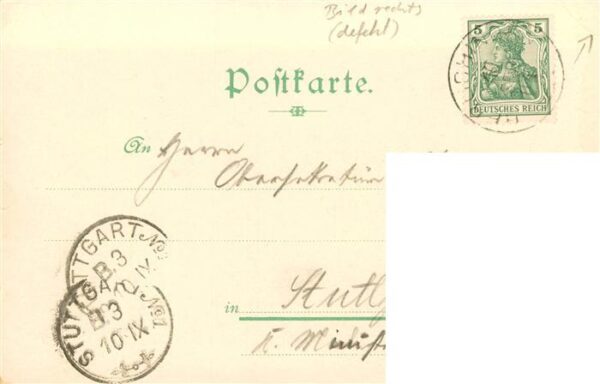 Bild rechts
(defekt)
5 5
DEUTSCHES REICH
Postkarte.
An Herrn
Obersekretär
STUTTGART No1
B. 3
10 IX
STUTTGART No1
B 3
10·IX
in Stutt
K. Minist